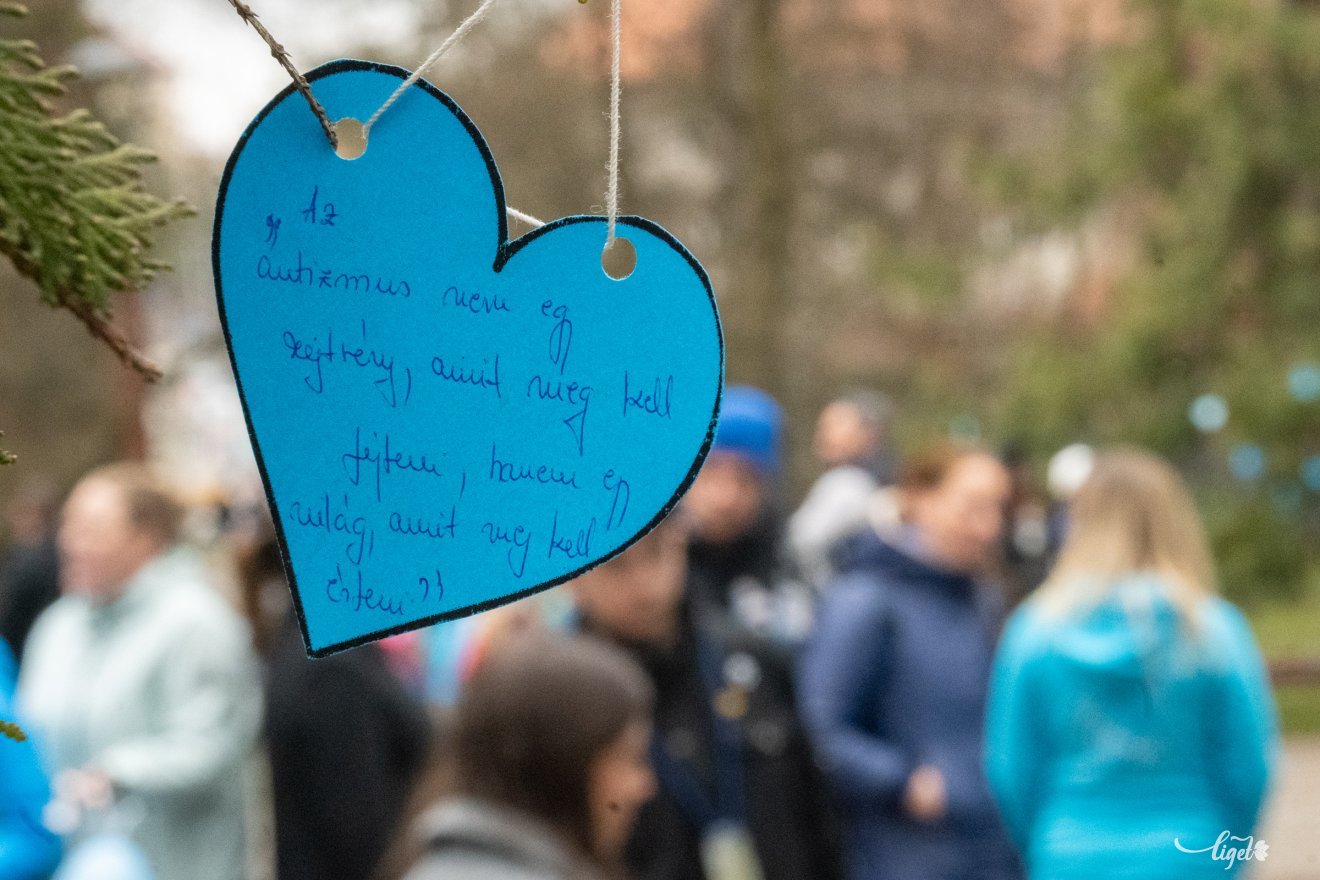 „Az
autizmus nem egy
rejtvény, amit meg kell
fejteni, hanem egy
világ, amit meg kell
érteni”
liget